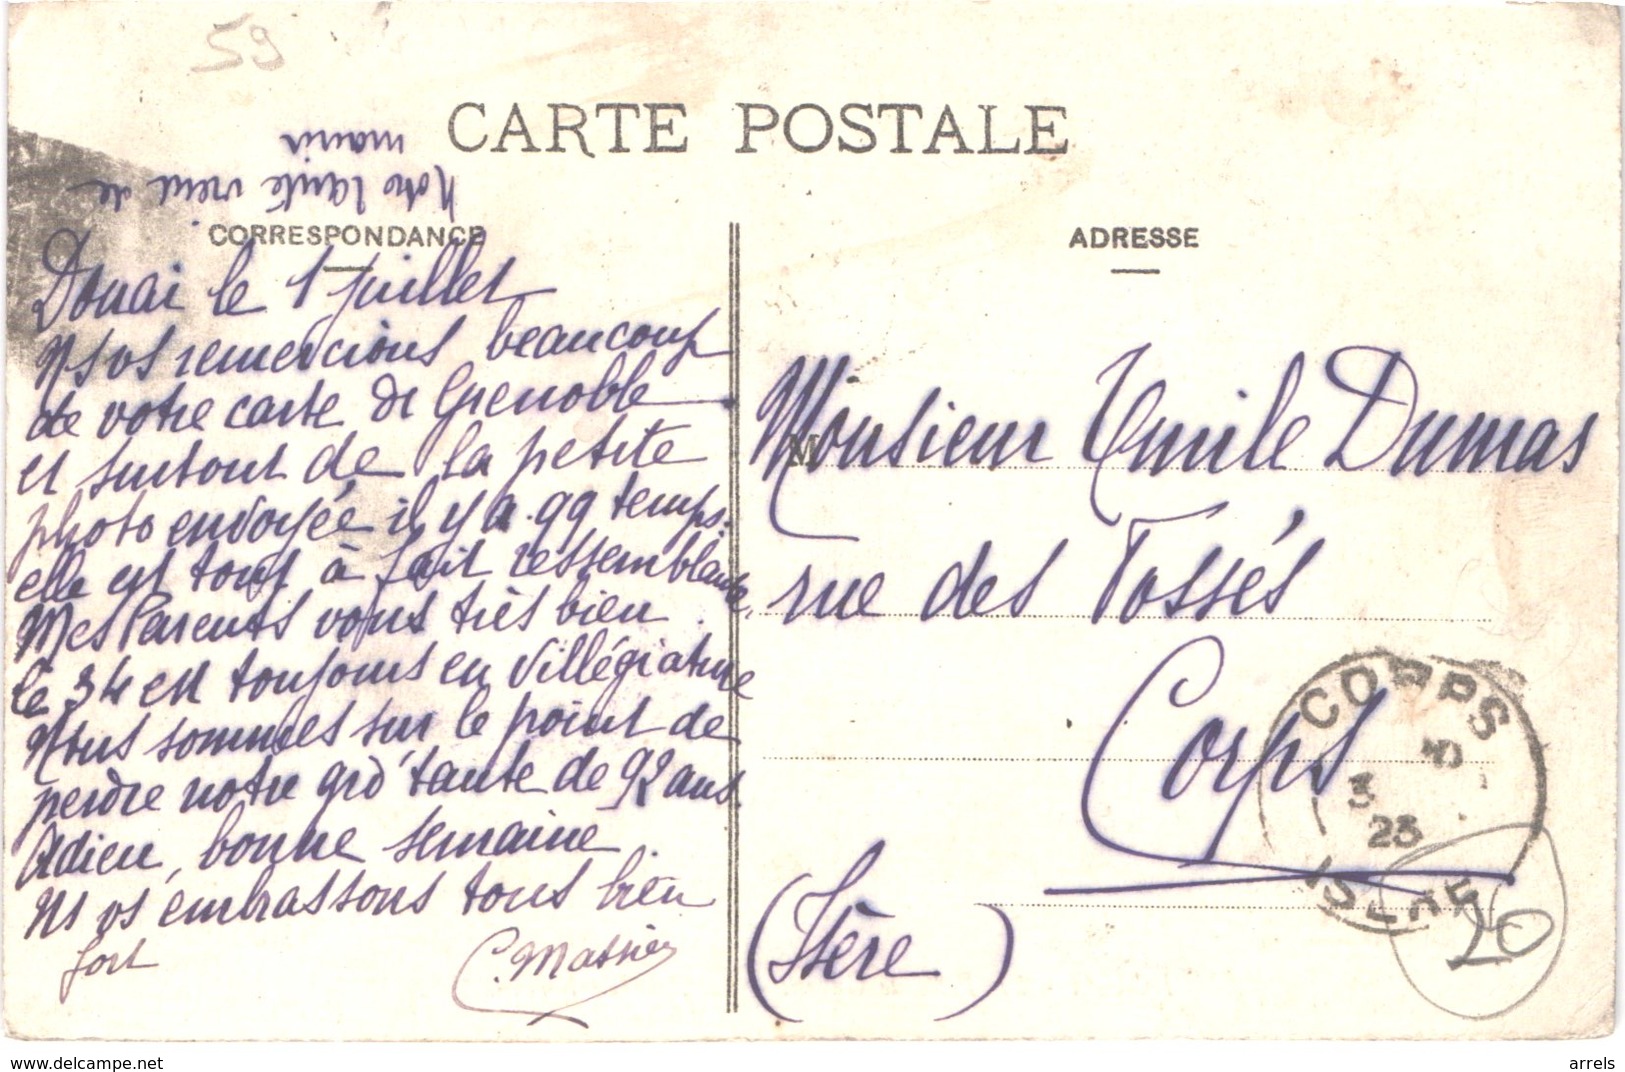 59
CARTE POSTALE
Notre tante vient de
mourir
CORRESPONDANCE
ADRESSE
Douai le 1 juillet
Ns vs remercions beaucoup
de votre carte de Grenoble
et surtout de la petite
photo envoyée il y a qq temps.
elle est tout à fait ressemblante,
Mes Parents vont très bien.
le 34 est toujours en villégiature
Nous sommes sur le point de
perdre notre grd' tante de 92 ans.
Adieu, bonne semaine
Ns vs embrassons tous bien
fort
C. Massie
M
Monsieur Emile Dumas
rue des Fossés
Corps
(Isère)
CORPS
3
23
ISERE
20
www.delcampe.net
arrels